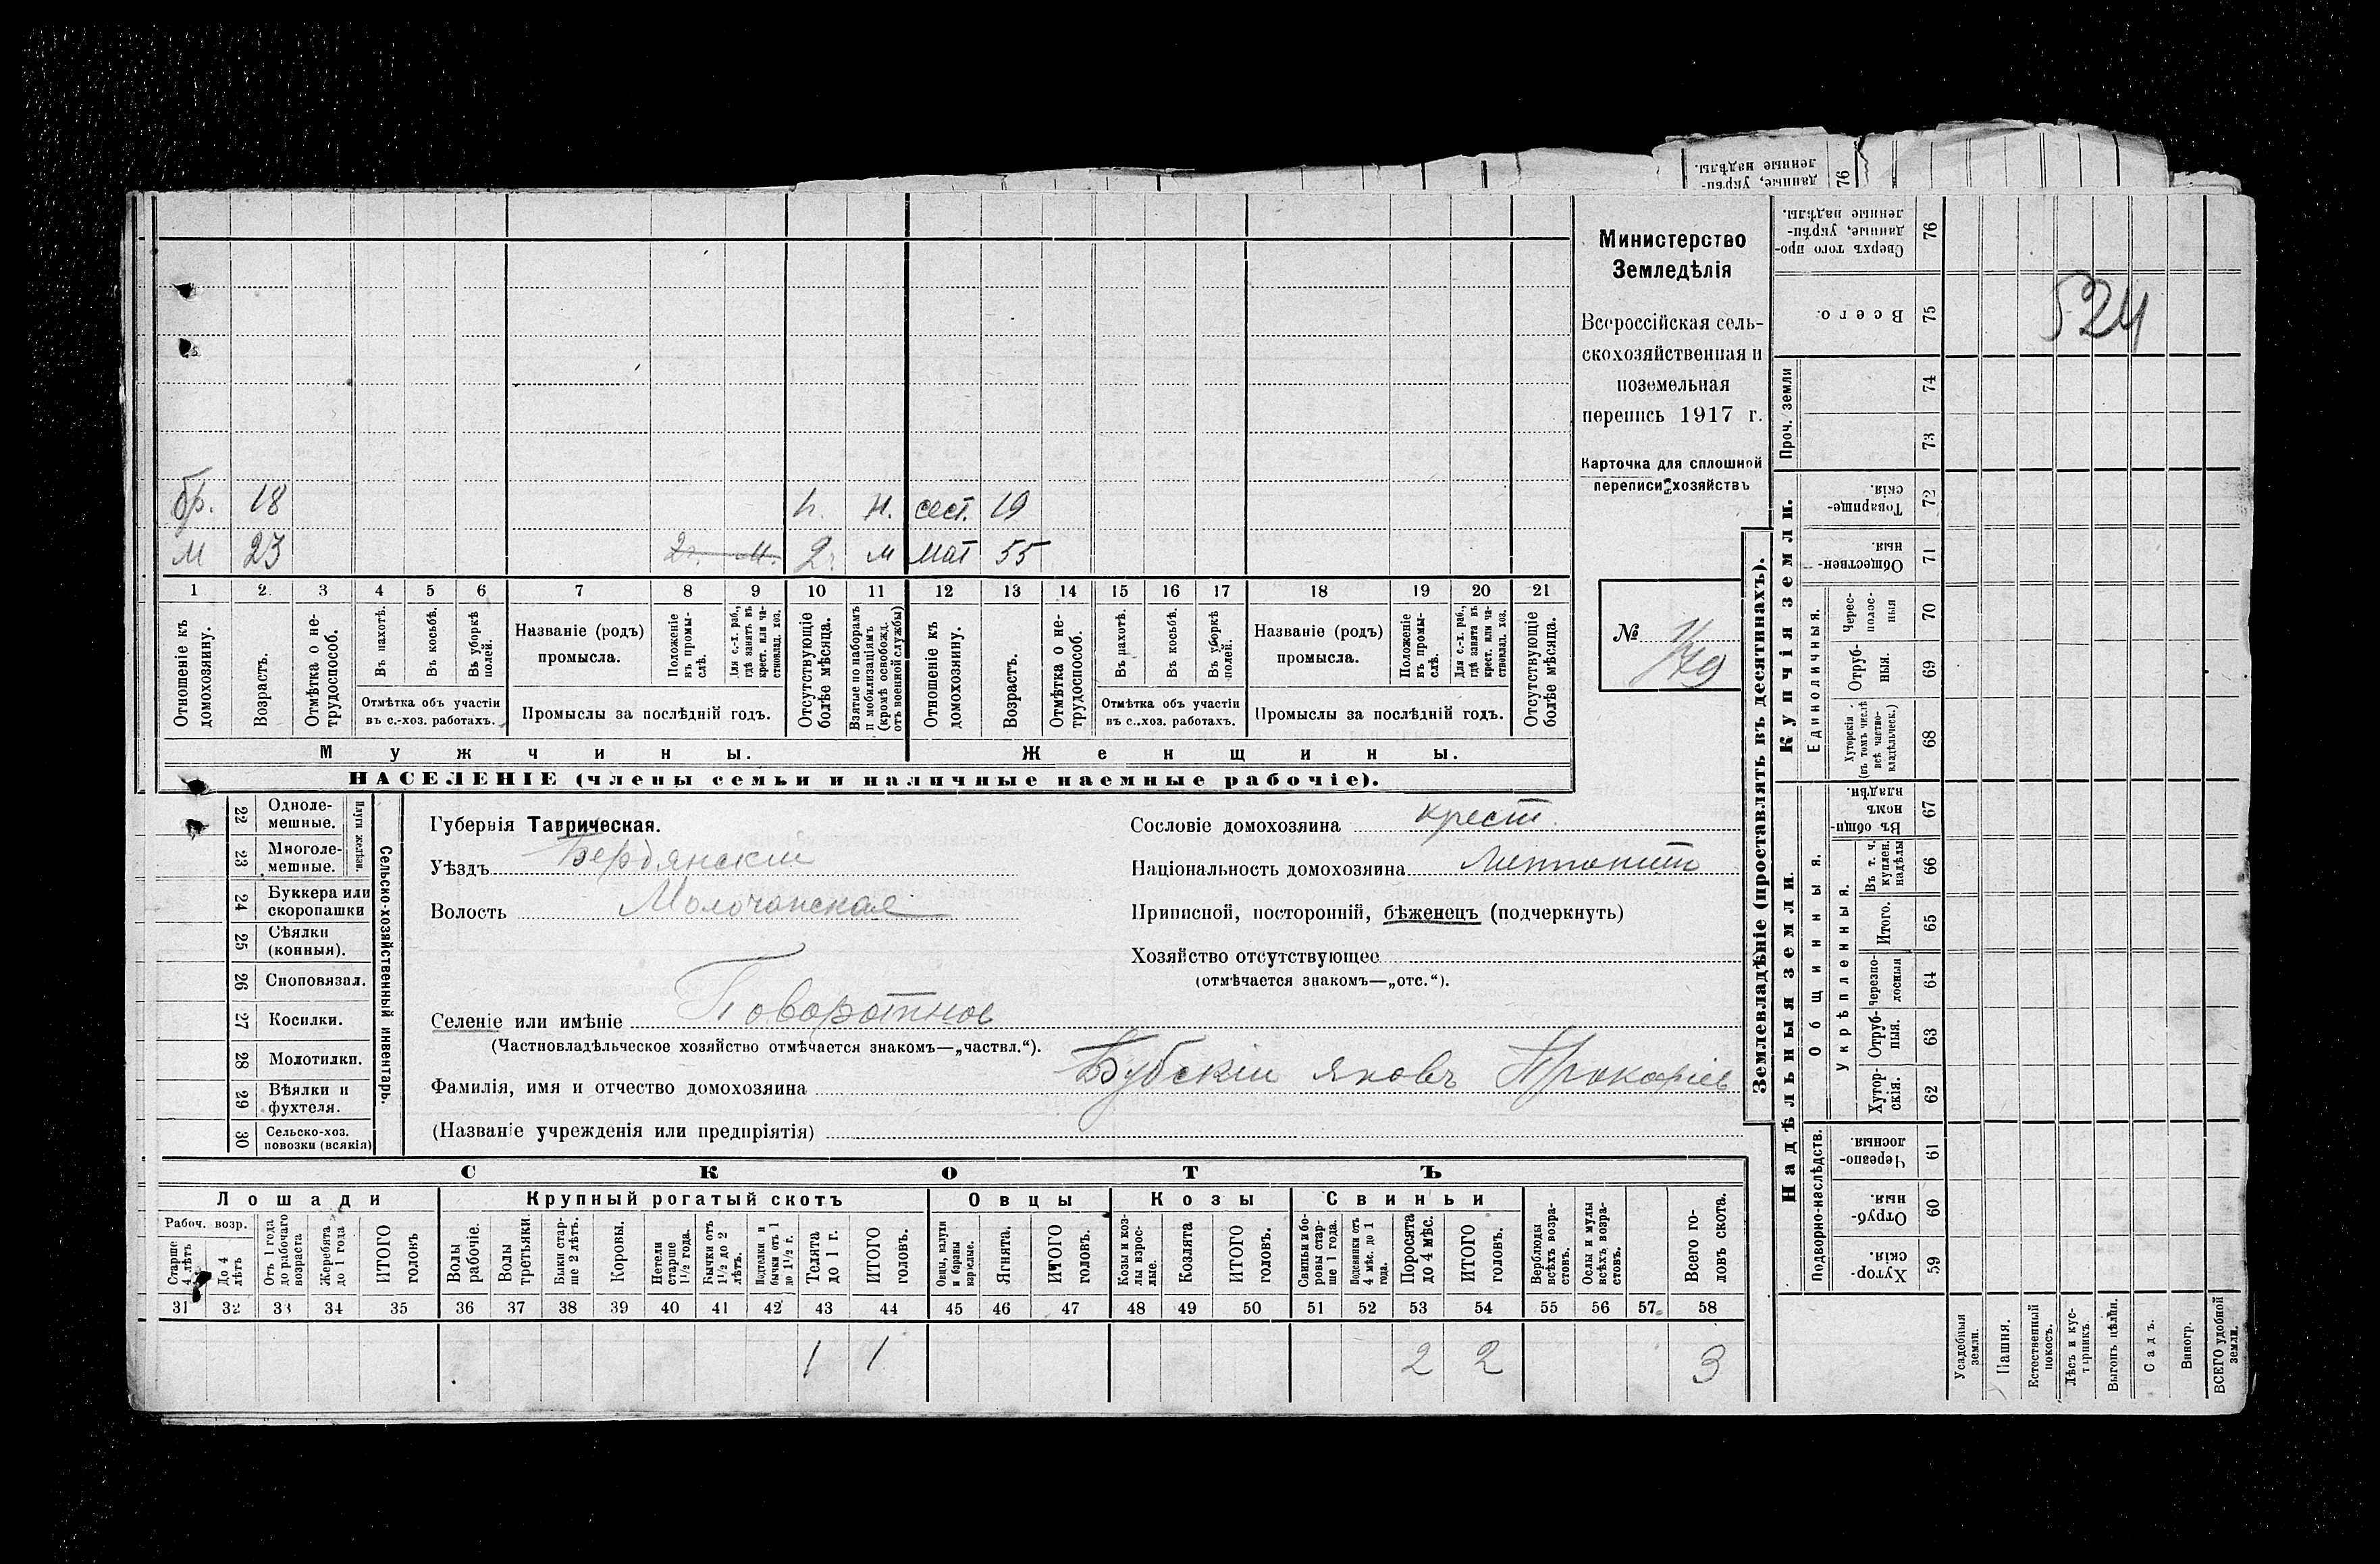 данные, укрѣп-
ленные надѣлы.
76
Министерство
Земледѣлія
Всероссійская сель-
скохозяйственная и
поземельная
перепись 1917 г.
Карточка для сплошной
переписи хозяйствъ
№ 179
524
бр. 18 н. н. сест. 19
м 23 2г. м. 2г. м мат 55
1 2 3 4 5 6 7 8 9 10 11 12 13 14 15 16 17 18 19 20 21
Отношеніе къ домохозяину.
Возрастъ.
Отмѣтка о не-трудоспособ.
Въ пахотѣ.
Въ косьбѣ.
Въ уборкѣ полей.
Отмѣтка объ участіи
въ с.-хоз. работахъ.
Названіе (родъ)
промысла.
Положеніе въ промы-слѣ.
Для с.-х. раб., гдѣ занятъ въ крест. или ча-стновлад. хоз.
Промыслы за послѣдній годъ.
Отсутствующіе болѣе мѣсяца.
Взятые по наборамъ и мобилизаціямъ (кромѣ освобожд. отъ военной службы)
Отношеніе къ домохозяину.
Возрастъ.
Отмѣтка о не-трудоспособ.
Въ пахотѣ.
Въ косьбѣ.
Въ уборкѣ полей.
Отмѣтка объ участіи
въ с.-хоз. работахъ.
Названіе (родъ)
промысла.
Положеніе въ промы-слѣ.
Для с.-х. раб., гдѣ занята въ крест. или ча-стновлад. хоз.
Промыслы за послѣдній годъ.
Отсутствующіе болѣе мѣсяца.
Мужчины. Женщины.
НАСЕЛЕНІЕ (члены семьи и наличные наемные рабочіе).
22 Одноле-мешные.
23 Многоле-мешные.
Плуги желѣзн.
24 Буккера или скоропашки
25 Сѣялки (конныя).
26 Сноповязал.
27 Косилки.
28 Молотилки.
29 Вѣялки и фухтеля.
30 Сельско-хоз. повозки (всякія)
Сельско-хозяйственный инвентарь.
Губернія Таврическая.
Уѣздъ Бердянскій
Волость Молочанская
Селеніе или имѣніе Поворотное
(Частновладѣльческое хозяйство отмѣчается знакомъ—„частвл.“).
Фамилія, имя и отчество домохозяина Бубскій Яковъ Прокофіев
(Названіе учрежденія или предпріятія)
Сословіе домохозяина крест.
Національность домохозяина
Приписной, посторонній, бѣженецъ (подчеркнуть)
Хозяйство отсутствующее
(отмѣчается знакомъ—„отс.“).
СКОТЪ
Лошади Крупный рогатый скотъ Овцы Козы Свиньи
Рабоч. возр.
Старше 4 лѣтъ
До 4 лѣтъ
Отъ 1 года до рабочаго возраста
Жеребята до 1 года
ИТОГО головъ
Волы рабочіе.
Волы третьяки.
Быки стар-ше 2 лѣтъ.
Коровы.
Нетели старше 1½ года.
Бычки отъ 1½ до 2 лѣтъ.
Подтелки и бычки отъ 1 до 1½ г.
Телята до 1 г.
ИТОГО головъ.
Овцы, валухи и бараны взрослые.
Ягнята.
ИТОГО головъ.
Козы и коз-лы взрос-лые.
Козлята
ИТОГО головъ.
Свиньи и бо-ровы стар-ше 1 года.
Подсвинки отъ 4 мѣс. до 1 года.
Поросята до 4 мѣс.
ИТОГО головъ.
Верблюды всѣхъ возра-стовъ.
Ослы и мулы всѣхъ возра-стовъ.
Всего го-ловъ скота.
31 32 33 34 35 36 37 38 39 40 41 42 43 44 45 46 47 48 49 50 51 52 53 54 55 56 57 58
1 1 2 2 3
Землевладѣніе (проставлять въ десятинахъ).
Купчія земли.
Надѣльныя земли.
Сверхъ того про-данные, укрѣп-ленные надѣлы. 76
Всего. 75
Проч. земли 74
73
Товарище-скія. 72
Обществен-ныя. 71
Единоличныя.
Черес-полос-ныя 70
Отруб-ныя. 69
Хуторскія (въ томъ числѣ всѣ частно-владѣльческ.) 68
Общинныя.
Въ общи-номъ владѣн. 67
Укрѣпленныя.
Въ т. ч. куплен. надѣлы 66
Итого. 65
черезпо-лосныя 64
Отруб-ныя. 63
Хутор-скія. 62
Подворно-наслѣдств.
Черезпо-лосныя. 61
Отруб-ныя. 60
Хутор-скія. 59
Усадебныя земли.
Пашня.
Естественный покосъ.
Лѣсъ и кус-тарникъ.
Выгонъ цѣлин.
Садъ.
Виногр.
ВСЕГО удобной земли.